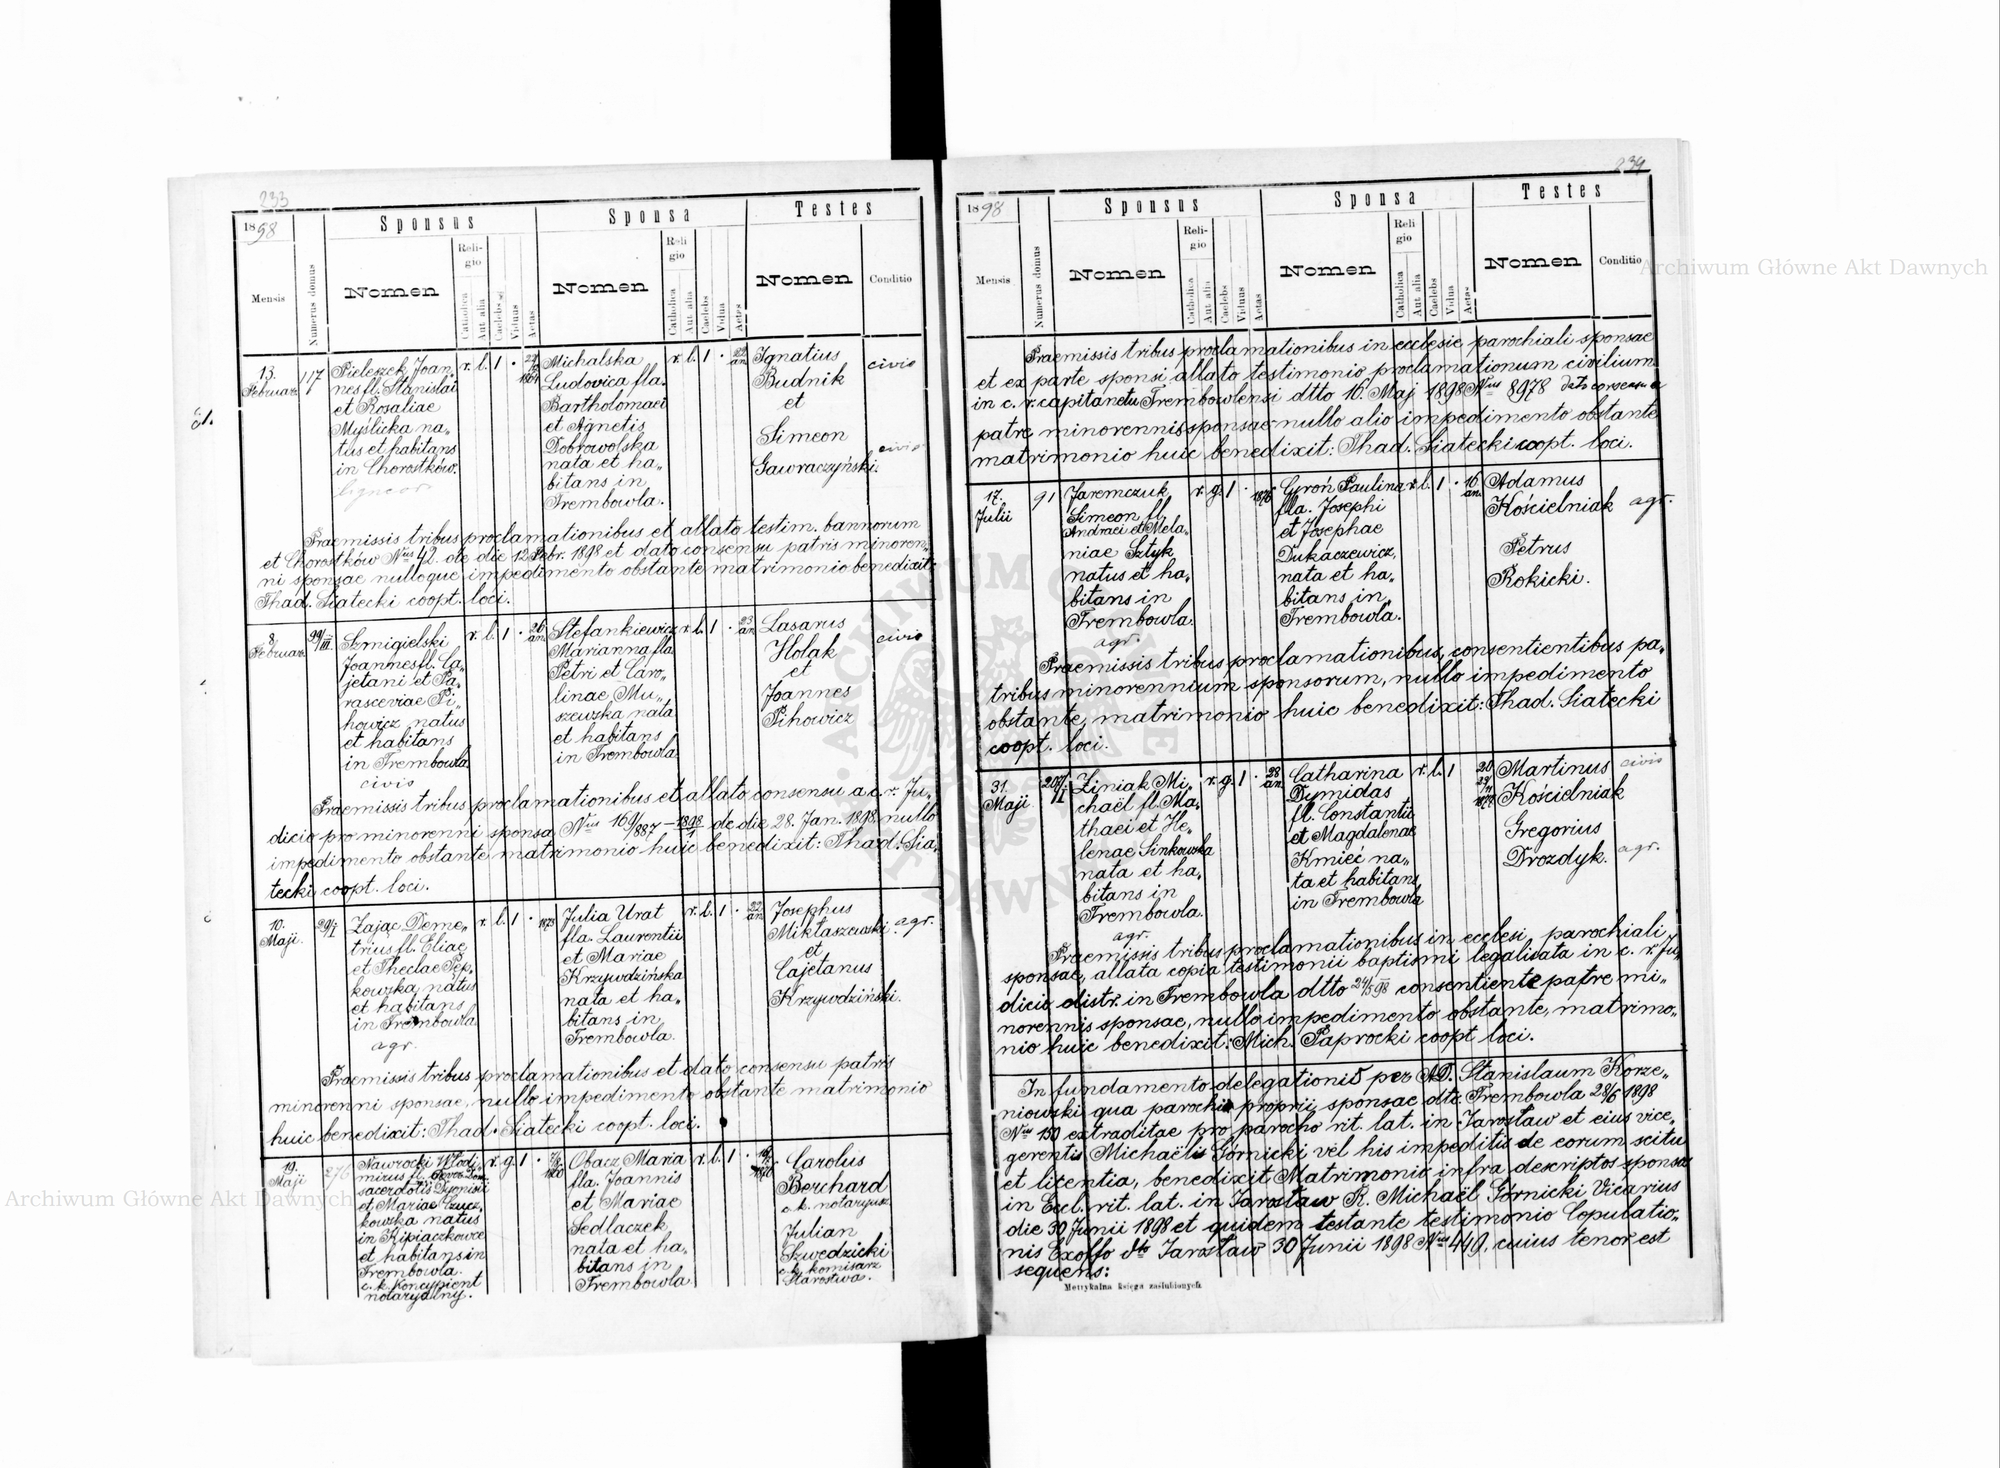 233
1898
Sponsus
Sponsa
Testes
Mensis
Numerus domus
Nomen
Religio
Catholica
Aut alia
Caelebs
Viduus
Aetas
Nomen
Religio
Catholica
Aut alia
Caelebs
Vidua
Aetas
Nomen
Conditio
13.
Februar.
117
Pieleszek Joan„
nes fl. Stanislai
et Rosaliae
Myślicka na„
tus et habitans
in Chorostków.
r. l. 1 ·
Michalska
Ludovica fla.
Bartholomaei
et Agnetis
Dobrowolska
nata et ha„
bitans in
Trembowla.
r. l. 1 · 22 an.
Ignatius
Budnik
et
Simeon
Gawraczyński.
civis
civis
Praemissis tribus proclamationibus et allato testim. bannorum
et Chorostków Nus 42. de die 12 Febr. 1898 et dato consensu patris minoren„
ni sponsae nulloque impedimento obstante matrimonio benedixit:
Thad. Siatecki coopt. loci.
8/
Februar.
99/III
Szmigielski
Joannes fl. Ca„
jetani et Pa„
rasceviae Pi„
howicz natus
et habitans
in Trembowla.
civis
r. l. 1 · 26 an.
Stefankiewicz
Marianna fla
Petri et Caro„
linae Mu„
szewska nata
et habitans
in Trembowla.
r. l. 1 · 23 an.
Lasarus
Holak
et
Joannes
Pihowicz
civis
Praemissis tribus proclamationibus et allato consensu a c. r. Ju„
dicio pro minorenni sponsa Nus 169/887 – 1898/1 de die 28. Jan. 1898, nullo
impedimento obstante matrimonio huic benedixit: Thad. Sia„
tecki coopt. loci.
10.
Maji.
29/I
Zając Deme„
trius fl. Eliae
et Theclae Pep„
kowska, natus
et habitans
in Trembowla.
agr.
r. l. 1 · 1873
Julia Urat
fla. Laurentii
et Mariae
Krzywdzińska
nata et ha„
bitans in
Trembowla.
r. l. 1 · 22 an
Josephus
Miktaszewski
et
Cajetanus
Krzywdziński.
agr.
Praemissis tribus proclamationibus et dato consensu patris
minorenni sponsae, nullo impedimento obstante matrimonio
huic benedixit: Thad. Siatecki coopt. loci.
19.
Maji
276
Nawrocki Włodi„
mirus fl.
sacerdotis Dyonisii
et Mariae Czucz„
kowska natus
in Kipiaczkowce
et habitans in
Trembowla.
c. k. koncypient
notaryalny.
r. g. 1 ·
Obacz Maria
fla. Joannis
et Mariae
Sedlaczek,
nata et ha„
bitans in
Trembowla
r. l. 1 ·
Carolus
Berchard
c. k. notaryusz.
Julian
Szwedzicki
c. k. komisarz
Starostwa.
234
1898
Sponsus
Sponsa
Testes
Mensis
Numerus domus
Nomen
Religio
Catholica
Aut alia
Caelebs
Viduus
Aetas
Nomen
Religio
Catholica
Aut alia
Caelebs
Vidua
Aetas
Nomen
Conditio
Praemissis tribus proclamationibus in ecclesie parochiali sponsae
et ex parte sponsi allato testimonio proclamationum civilium
in c. r. capitanctu Trembowlensi dtto 16. Maj 1898 Nus 8978 dato consensu a
patre minorennis sponsae nullo alio impedimento obstante
matrimonio huic benedixit: Thad. Siatecki coopt. loci.
17.
Julii
91
Jaremczuk
Simeon fl.
Andraei et Mela„
niae Sztyk,
natus et ha„
bitans in
Trembowla.
agr.
r. g. 1 · 1876
Gyroń Paulina
fla. Josephi
et Josephae
Dukaczewicz,
nata et ha„
bitans in
Trembowla.
r. l. 1 · 16 an.
Adamus
Kościelniak
Petrus
Rokicki.
agr.
Praemissis tribus proclamationibus, consentientibus pa„
tribus minorennium sponsorum, nullo impedimento
obstante, matrimonio huic benedixit: Thad. Siatecki
coopt. loci.
31.
Maji
207/I
Ziniak Mi„
chaël fl. Ma„
thaei et He„
lenae Sinkowska
nata et ha„
bitans in
Trembowla.
agr.
r. g. 1 · 28 an.
Catharina
Dymidas
fl. Constantii
et Magdalenae
Kmieć na„
ta et habitans
in Trembowla
r. l. 1
Martinus
Kościelniak
Gregorius
Drozdyk.
civis
agr.
Praemissis tribus proclamationibus in ecclesi, parochiali
sponsae, allata copia testimonii baptismi legalisata in c. r. Ju„
dicio distr. in Trembowla dtto 24/5 98 consentiente patre mi„
norennis sponsae, nullo impedimento obstante, matrimo„
nio huic benedixit: Mich. Paprocki coopt loci.
In fundamento delegationis per AD. Stanislaum Korze„
niowski qua parochi proprii sponsae dtto. Trembowla 28/6 1898
Nus 150 extraditae pro parocho rit. lat. in Jarosław et eius vice„
gerentis Michaëlis Górnicki vel his impeditis de eorum scitu
et licentia, benedixit Matrimonio infra descriptos sponsos
in Eccl. rit. lat. in Jarosław R. Michaël Górnicki Vicarius
die 30 Junii 1898 et quidem testante testimonio Copulatio„
nis Exoffo dto Jarosław 30 Junii 1898 Nus 449, cuius tenor est
sequens:
Metrykalna księga zaślubionych
Archiwum Główne Akt Dawnych
Archiwum Główne Akt Dawnych